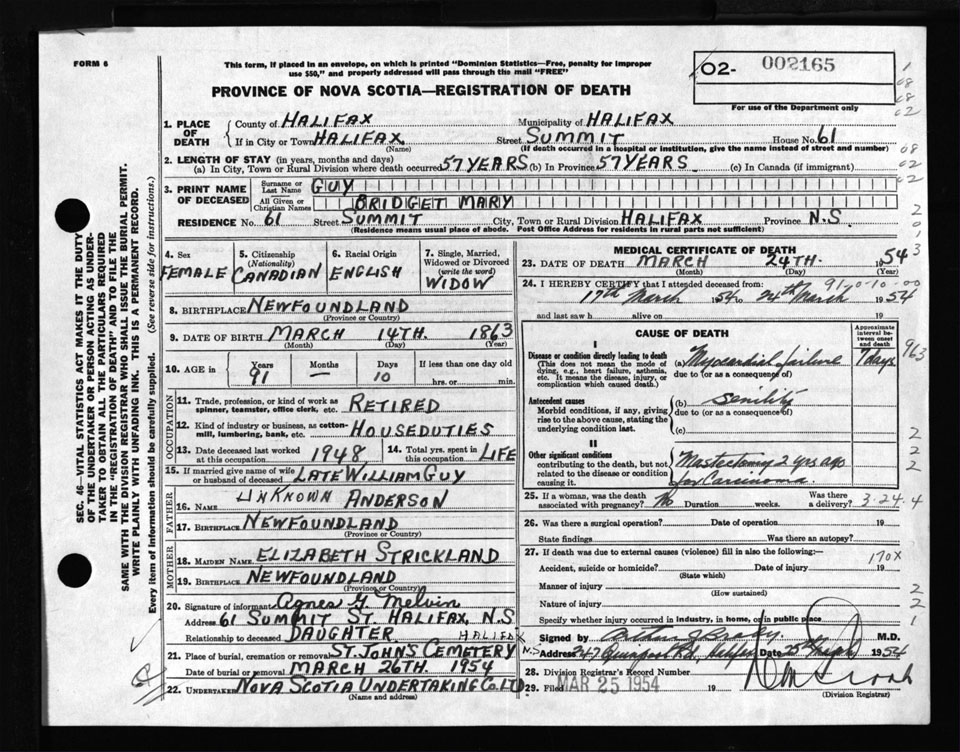 FORM 6
This form, if placed in an envelope, on which is printed "Dominion Statistics—Free, penalty for improper
use $50," and properly addressed will pass through the mail "FREE"
02- 002165
For use of the Department only
PROVINCE OF NOVA SCOTIA—REGISTRATION OF DEATH
1. PLACE OF DEATH
County of HALIFAX Municipality of HALIFAX
If in City or Town HALIFAX Street SUMMIT House No. 61
(Name) (If death occurred in a hospital or institution, give the name instead of street and number)
2. LENGTH OF STAY (in years, months and days)
(a) In City, Town or Rural Division where death occurred 57 YEARS (b) In Province 57 YEARS (c) In Canada (if immigrant)
3. PRINT NAME OF DECEASED
Surname or Last Name GUY
All Given or Christian Names BRIDGET MARY
RESIDENCE No. 61 Street SUMMIT City, Town or Rural Division HALIFAX Province N.S
(Residence means usual place of abode. Post Office Address for residents in rural parts not sufficient)
4. Sex FEMALE
5. Citizenship (Nationality) CANADIAN
6. Racial Origin ENGLISH
7. Single, Married, Widowed or Divorced (write the word) WIDOW
8. BIRTHPLACE NEWFOUNDLAND
(Province or Country)
9. DATE OF BIRTH MARCH 14TH. 1863
(Month) (Day) (Year)
10. AGE in Years 91 Months — Days 10 If less than one day old
hrs. or min.
OCCUPATION
11. Trade, profession, or kind of work as spinner, teamster, office clerk, etc. RETIRED
12. Kind of industry or business, as cotton-mill, lumbering, bank, etc. HOUSEDUTIES
13. Date deceased last worked at this occupation 1948
14. Total yrs. spent in this occupation LIFE
15. If married give name of wife or husband of deceased LATE WILLIAM GUY
FATHER
16. Name UNKNOWN ANDERSON
17. Birthplace NEWFOUNDLAND
(Province or Country)
MOTHER
18. Maiden Name ELIZABETH STRICKLAND
19. Birthplace NEWFOUNDLAND
(Province or Country)
20. Signature of informant Agnes G. Melvin
Address 61 SUMMIT ST. HALIFAX, N.S
Relationship to deceased DAUGHTER
HALIFAX N.S
21. Place of burial, cremation or removal ST. JOHNS CEMETERY
Date of burial or removal MARCH 26TH. 1954
22. UNDERTAKER NOVA SCOTIA UNDERTAKING CO. LTD
(Name and address)
MEDICAL CERTIFICATE OF DEATH
23. DATE OF DEATH MARCH 24TH. 1954
(Month) (Day) (Year)
24. I HEREBY CERTIFY that I attended deceased from:
91-0-10-00
17th March 1954 to 24th March 1954
and last saw h alive on 19
CAUSE OF DEATH
Approximate interval between onset and death
I
Disease or condition directly leading to death
(This does not mean the mode of dying, e.g., heart failure, asthenia, etc. It means the disease, injury, or complication which caused death.)
(a) Myocardial failure 7 days
due to (or as a consequence of)
Antecedent causes
Morbid conditions, if any, giving rise to the above cause, stating the underlying condition last.
(b) senility
due to (or as a consequence of)
(c)
II
Other significant conditions
contributing to the death, but not related to the disease or condition causing it.
Mastectomy 2 yrs ago
for Carcinoma.
25. If a woman, was the death associated with pregnancy? No Duration weeks. Was there a delivery?
3-24-4
26. Was there a surgical operation? Date of operation 19
State findings Was there an autopsy?
27. If death was due to external causes (violence) fill in also the following:—
170X
Accident, suicide or homicide? Date of injury 19
(State which)
Manner of injury
(How sustained)
Nature of injury
Specify whether injury occurred in industry, in home, or in public place
Signed by M.D.
Address 347 Rd., Halifax Date 25th March 1954
28. Division Registrar's Record Number
29. Filed MAR 25 1954 19
(Division Registrar)
SEC. 46—VITAL STATISTICS ACT MAKES IT THE DUTY
OF THE UNDERTAKER OR PERSON ACTING AS UNDER-
TAKER TO OBTAIN ALL THE PARTICULARS REQUIRED
IN THE "REGISTRATION OF DEATH" AND TO FILE THE
SAME WITH THE DIVISION REGISTRAR WHO SHALL ISSUE THE BURIAL PERMIT.
WRITE PLAINLY WITH UNFADING INK. THIS IS A PERMANENT RECORD.
Every item of information should be carefully supplied. (See reverse side for instructions.)
963